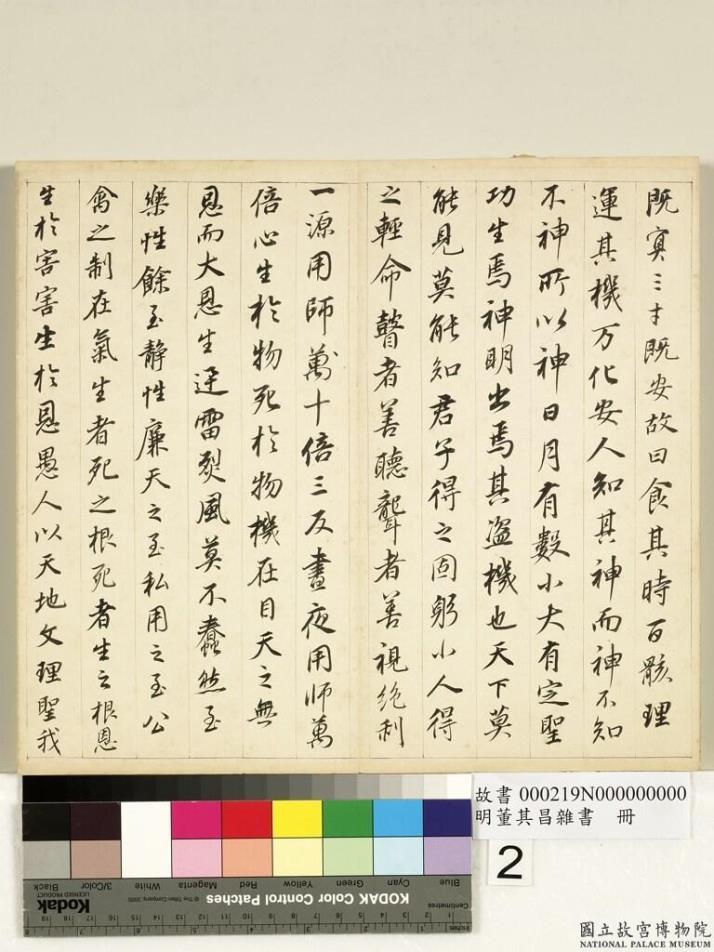 既冥三才既安故曰食其時百骸理
運其機万化安人知其神而神不知
不神所以神日月有數小大有定聖
功生焉神明出焉其盗機也天下莫
能見莫能知君子得之固躬小人得
之輕命瞽者善聽聾者善視絶利
一源用師萬十倍三反晝夜用師萬
倍心生於物死於物機在目天之無
恩而大恩生迅雷烈風莫不蠢然至
樂性餘至静性廉天之至私用之至公
禽之制在氣生者死之根死者生之根恩
生於害害生於恩愚人以天地文理聖我
故書 000219N000000000
明董其昌雜書 冊
2
Blue
Cyan
Green
Yellow
Red
Magenta
White
3/Color
Black
KODAK Color Control Patches
Kodak
LICENSED PRODUCT
Centimetres
1 2 3 4 5 6 7 8 9 10 11 12 13 14 15 16 17 18 19
國立故宮博物院
NATIONAL PALACE MUSEUM